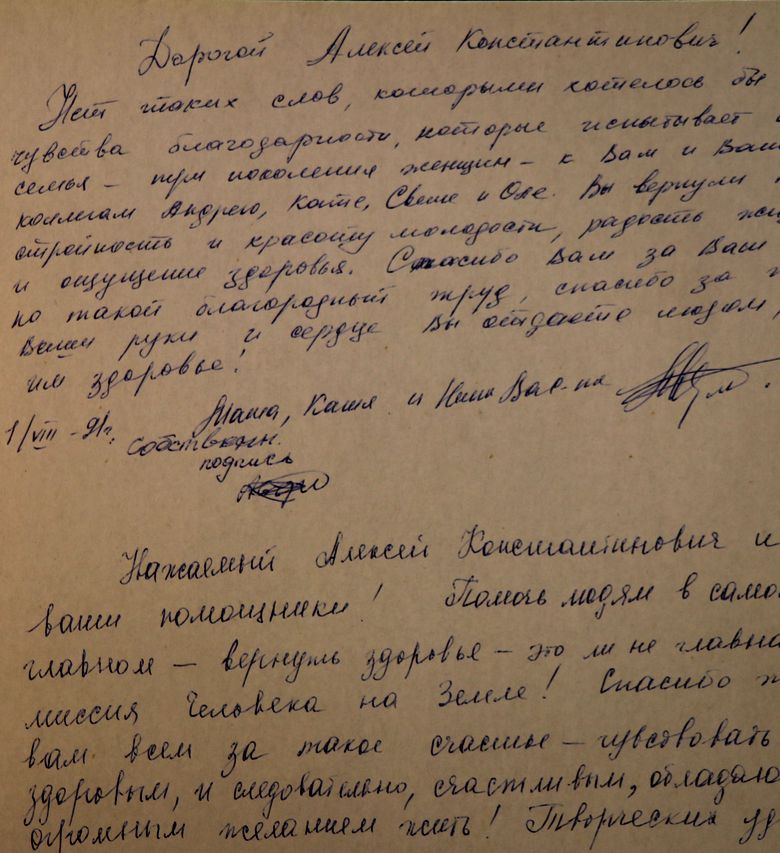 Дорогой Алексей Константинович!
Нет таких слов, которыми хотелось бы
чувства благодарности, которые испытывает
семья – три поколения женщин – к Вам и Ваш
коллегам Андрею, Кате, Свете и Оле. Вы вернули
стройность и красоту молодости, радость жи
и ощущение здоровья. Спасибо Вам за Ваш
но такой благородный труд, спасибо за
Ваши руки и сердце Вы отдаёте людям,
им здоровье!
1/VIII - 91г. Маша, Катя и Нина Вас-на
собственн.
подпись
Уважаемый Алексей Константинович и
ваши помощники! Помочь людям в само
главном – вернуть здоровье – это ли не главна
миссия Человека на Земле! Спасибо
вам всем за такое счастье – чувствовать
здоровым, и следовательно, счастливым, обладаю
огромным желанием жить! Творческих уд